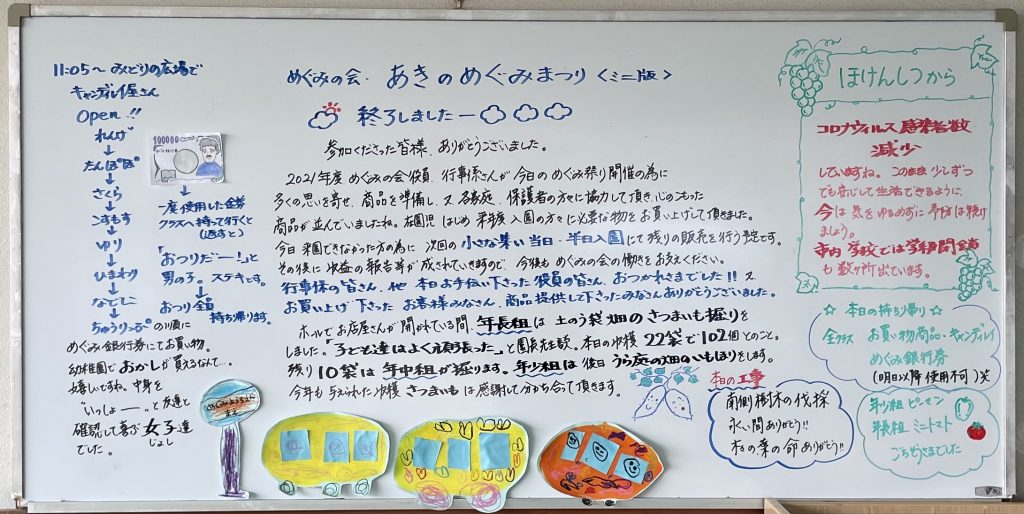 11:05〜 みどりの広場で
キャンディレイ屋さん
Open !!
れんげ
↓
たんぽぽ
↓
さくら
↓
こすもす
↓
ゆり
↓
ひまわり
↓
なでしこ
↓
ちゅうりっぷ の順に
めぐみ銀行券にてお買物。
幼稚園で おかしが買えるなんて…
嬉しいですね。中身を
"いっしょー。"と友達と
確認して喜ぶ 女子達
じょし
でした。
100000
一度使用した金券
クラスへ持って行くと
(返すと)
「おつりだー!」と
男の子。ステキです。
おつり全員
持ち帰ります。
めぐみの会・ あきのめぐみまつり <ミニ版>
終了しましたー
参加くださった皆様、ありがとうございました。
2021年度 めぐみの会役員、行事係さんが 今日の めぐみ祭り開催の為に
多くの思いを寄せ、商品を準備し、又 各家庭、保護者の方々に協力して頂き、心のこもった
商品が並んでいましたね。在園児 はじめ 来年度入園の方々に必要な物をお買い上げして頂きました。
今日 来園できなかった方の為に 次回の 小さな集い当日・半日入園にて残りの販売を行う予定です。
その後に 収益の報告等が成されていきますので、今後も めぐみの会の働きを お支えください。
行事係の皆さん、他 本日お手伝い下さった 役員の皆さん、おつかれさまでした!! 又
お買い上げ 下さった お客様みなさん、商品提供して下さったみなさんありがとうございました。
ホールでお店屋さんが 開かれている間、年長組は 土のう袋畑のさつまいも掘りを
しました。「子ども達はよく頑張った」と園長先生談。本日の収穫 22袋で 102個とのこと。
残り 10袋は 年中組が掘ります。年少組は 後日 うら庭の畑のいもほりをします。
今年も 与えられた収穫 さつまいもは 感謝して分かち合って 頂きます。
本日の工事
南側樹木の伐採
永い間ありがとう!!
木々の葉の命ありがとう!!
ほけんしつから
コロナウィルス感染者数
減少
していますね。このまま 少しずつ
でも安心して生活できるように
今は 気をゆるめずに 予防は続け
ましょう。
市内 学校では学級閉鎖
も 数ヶ所出ています。
☆ 本日の持ち帰り ☆
全クラス お買い物商品・キャンディレイ
めぐみ銀行券
(明日以降使用不可)笑
年少組 ピーマン
年長組 ミニトマト
ごちそうさまでした